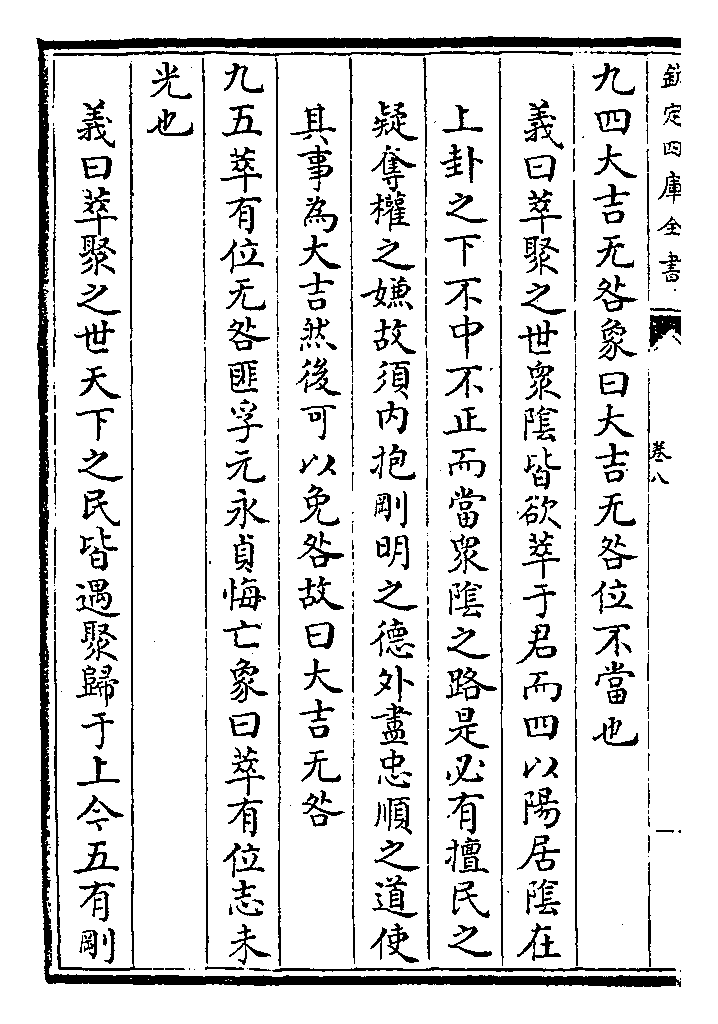 欽定四庫全書
卷八
九四大吉无咎象曰大吉无咎位不當也
義曰萃聚之世衆陰皆欲萃于君而四以陽居陰在
上卦之下不中不正而當衆陰之路是必有擅民之
疑奪權之嫌故須内抱剛明之德外盡忠順之道使
其事為大吉然後可以免咎故曰大吉无咎
九五萃有位无咎匪孚元永貞悔亡象曰萃有位志未
光也
義曰萃聚之世天下之民皆遇聚歸于上今五有剛